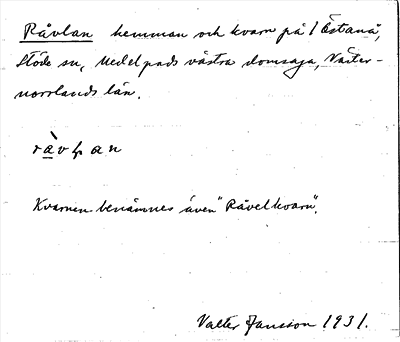 Råvlan hemman och kvarn på 1 Östanå,
Stöde sn, Medelpads västra domsaga, Väster-
norrlands län.
ràvłan
Kvarnen benämnes även "Råvelkvarn".
Valter Jansson 1931.